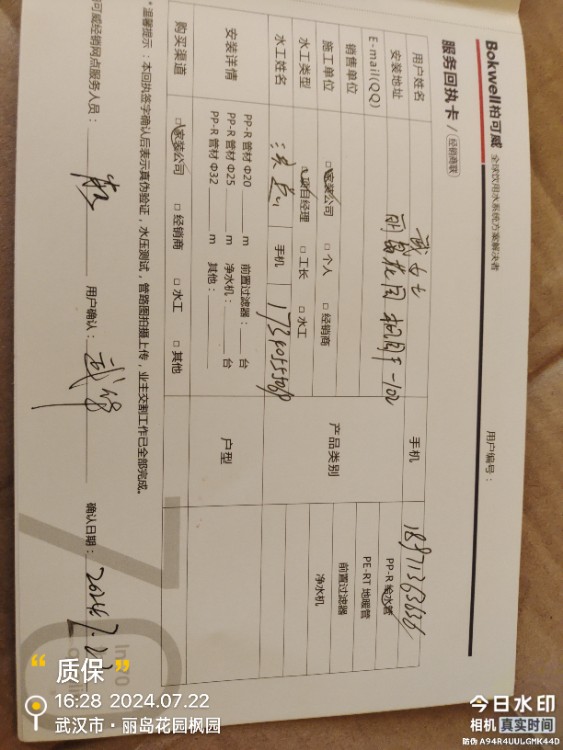 Bokwell柏可威 全球饮用水系统方案解决者
用户编号：
服务回执卡 / 经销商联
用户姓名 武女士 手机 18971363636
安装地址 丽岛花园 枫园
E-mail(QQ)
销售单位
产品类别 PP-R 给水管
PE-RT 地暖管
前置过滤器
净水机
施工单位 □家装公司 □ 个人 □ 经销商
水工类型 □项目经理 □ 工长 □ 水工
水工姓名 手机
安装详情 PP-R 管材 Φ20 m 前置过滤器： 台
PP-R 管材 Φ25 m 净水机： 台
PP-R 管材 Φ32 m 其他：
户型
购买渠道 □家装公司 □ 经销商 □ 水工 □ 其他
*温馨提示：本回执签字确认后表示真伪验证，水压测试，管路图拍摄上传，业主交割工作已全部完成。
可威经销网点服务人员： 用户确认： 确认日期： 2024.7.22
“ 质保 ”
16:28 2024.07.22
武汉市·丽岛花园枫园
今日水印
相机 真实时间
防伪 A94R4UULGMK44D